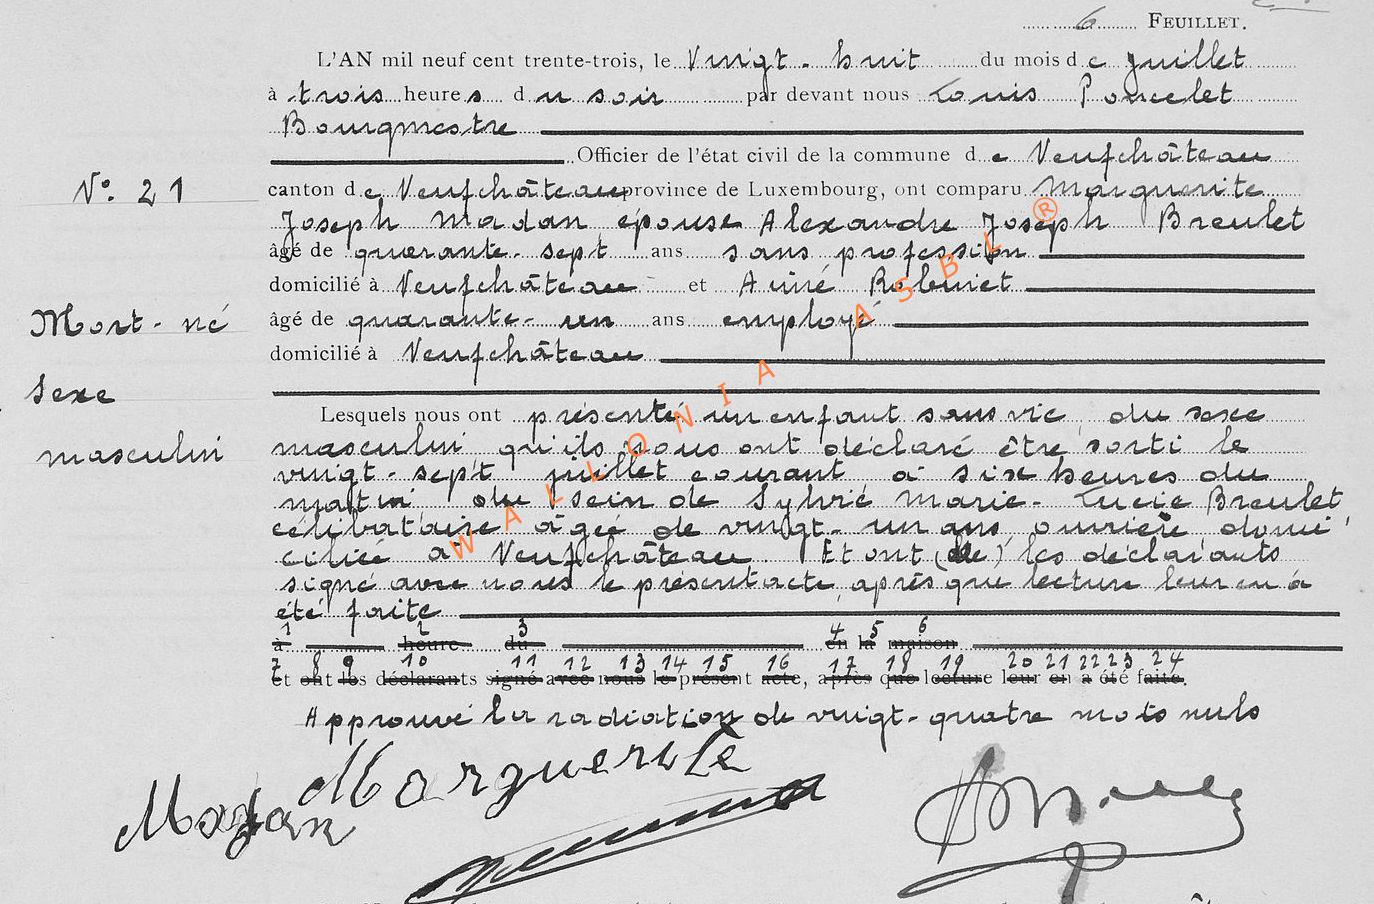 6 FEUILLET.
L'AN mil neuf cent trente-trois, le Vingt-huit du mois de juillet
à trois heures du soir par devant nous Louis Poncelet
Bourgmestre
Officier de l'état civil de la commune de Neufchâteau
N° 21
canton de Neufchâteau province de Luxembourg, ont comparu Marguerite
Joseph Madan, épouse Alexandre Joseph Breulet
âgé de quarante-sept ans sans profession
domicilié à Neufchâteau et Aimé Robinet
Mort-né
âgé de quarante-un ans employé
domicilié à Neufchâteau
Sexe
Lesquels nous ont présenté un enfant sans vie, du sexe
masculin
masculin qu'ils nous ont déclaré être sorti le
vingt-sept juillet courant à six heures du
matin du sein de Sylvie Marie-Lucie Breulet
célibataire âgée de vingt-un ans, ouvrière domi
ciliée à Neufchâteau Et ont (de) les déclarants
signé avec nous le présent acte, après que lecture leur en a
été faite
1 2 3 4 5 6
à heure du en la maison
7 8 9 10 11 12 13 14 15 16 17 18 19 20 21 22 23 24
Et ont les déclarants signé avec nous le présent acte, après que lecture leur en a été faite.
Approuvé la radiation de vingt-quatre mots nuls
Madan Marguerite
WALLONIA ASBL ®